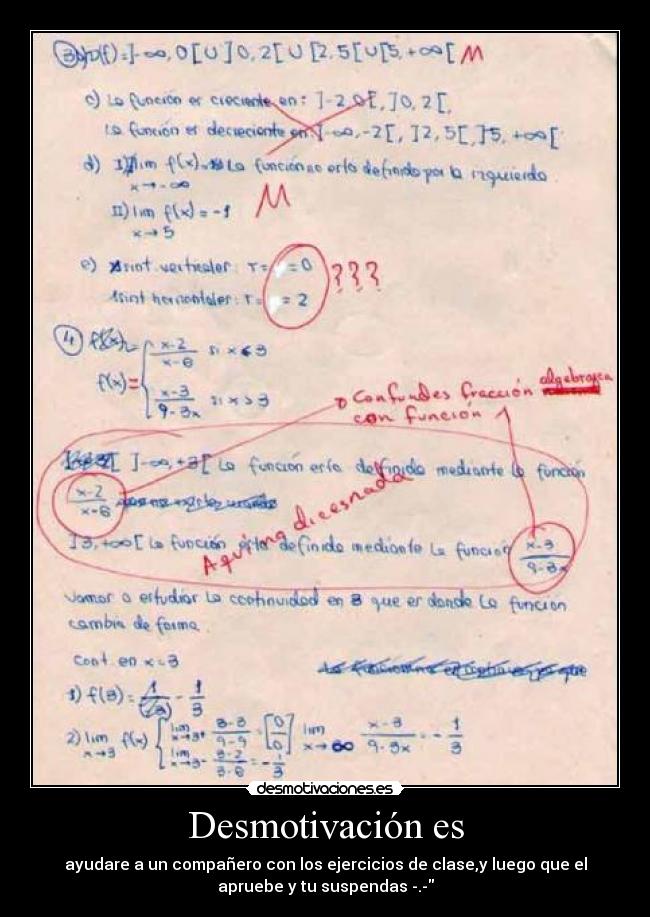 3) b) D(f)=]-∞,0[ U ]0,2[ U [2,5[ U [5,+∞[ M
c) La función es creciente en: ]-2,0[, ]0,2[,
La función es decreciente en: ]-∞,-2[, ]2,5[, ]5,+∞[
d) I) lim f(x) = La función no está definida por la izquierda.
x→-∞
II) lim f(x) = -1 M
x→5
e) Asint. verticales: r= =0 ???
Asint horizontales: r= =2
4) f(x)=
x-2 / x-6 si x<3
f(x)=
x-3 / 9-3x si x>3
Confundes fracción algebraica
con función
]-∞,+3[ La función está definida mediante la función
x-2 / x-6
Aquí no dices nada
]3,+∞[ La función está definida mediante la función x-3 / 9-3x
Vamos a estudiar la continuidad en 3 que es donde la función
cambia de forma.
Cont. en x=3
1) f(3)= - 1/3
2) lim f(x) lim x→3+ 3-3 / 9-9 = [0/0] lim x→∞ x-3 / 9-3x = - 1/3
x→3 lim x→3- 3-2 / 3-6 = - 1/3
desmotivaciones.es
Desmotivación es
ayudare a un compañero con los ejercicios de clase,y luego que el
apruebe y tu suspendas -.-"